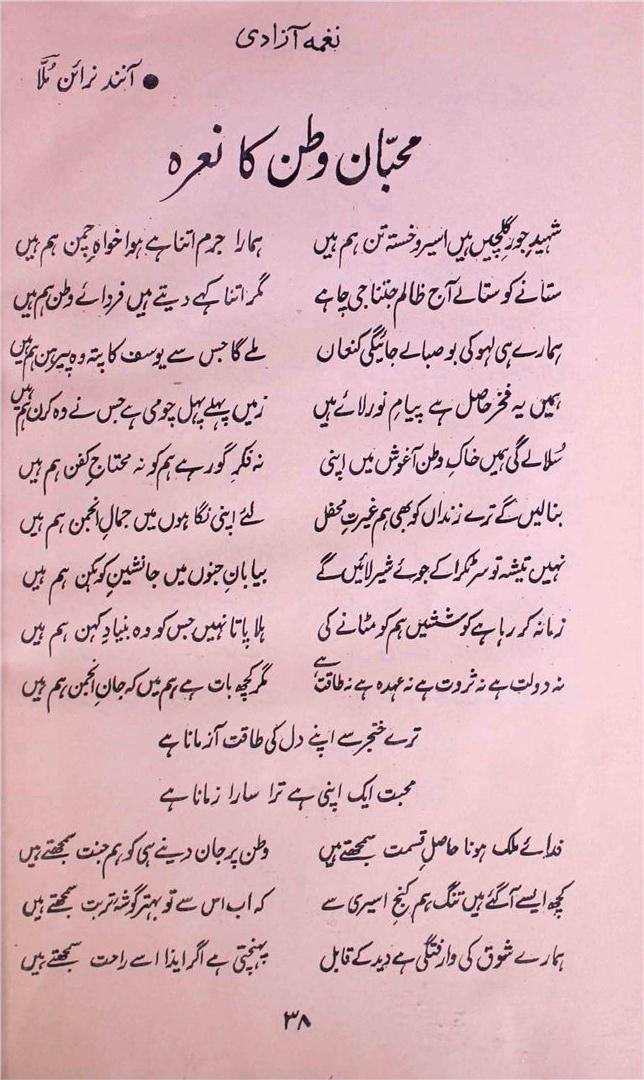 نغمہ آزادی
● آنند نرائن مُلّا
محبّان وطن کا نعرہ
شہیدِ جورِ گلچیں ہیں اسیر و خستہ تن ہم ہیں ہمارا جرم اتنا ہے ہوا خواہِ چمن ہم ہیں
ستانے کو ستالے آج ظالم جتنا جی چاہے مگر اتنا کہے دیتے ہیں فردائے وطن ہم ہیں
ہمارے ہی لہو کی بو صبا لے جائیگی کنعاں ملے گا جس سے یوسف کا پتہ وہ پیرہن ہم ہیں
ہمیں یہ فخر حاصل ہے پیامِ نور لائے ہیں زمیں پہلے پہل چومی ہے جس نے وہ کرن ہم ہیں
سُلالے گی ہمیں خاکِ وطن آغوش میں اپنی نہ فکرِ گور ہے ہم کو نہ محتاجِ کفن ہم ہیں
بنالیں گے ترے زنداں کو بھی ہم غیرتِ محفل لئے اپنی نگاہوں میں جمالِ انجمن ہم ہیں
نہیں تیشہ تو سر ٹکرا کے جوئے شیر لائیں گے بیابانِ جنوں میں جانشینِ کوہکن ہم ہیں
زمانہ کر رہا ہے کوششیں ہم کو مٹانے کی ہلا پاتا نہیں جس کو وہ بنیادِ کہن ہم ہیں
نہ دولت ہے نہ ثروت ہے نہ عہدہ ہے نہ طاقت ہے مگر کچھ بات ہے ہم میں کہ جانِ انجمن ہم ہیں
ترے خنجر سے اپنے دل کی طاقت آزمانا ہے
محبت ایک اپنی ہے ترا سارا زمانا ہے
فدائے ملک ہونا حاصلِ قسمت سمجھتے ہیں وطن پر جان دینے ہی کو ہم جنت سمجھتے ہیں
کچھ ایسے آگئے ہیں تنگ ہم کنجِ اسیری سے کہ اب اس سے تو بہتر گوشۂ تربت سمجھتے ہیں
ہمارے شوق کی وارفتگی ہے دید کے قابل پہنچتی ہے اگر ایذا اسے راحت سمجھتے ہیں
۳۸